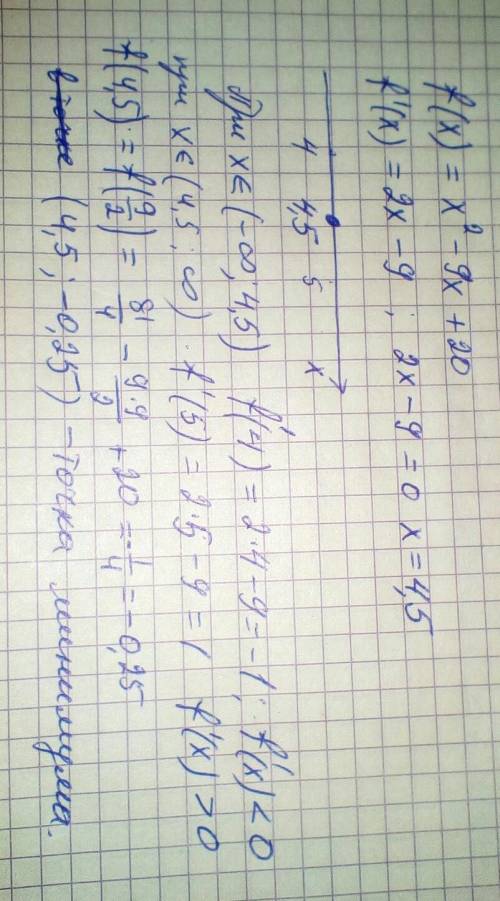 f(x) = x² - 9x + 20
f'(x) = 2x - 9 ; 2x - 9 = 0 x = 4,5
4 4,5 5 x
При x ∈ (-∞; 4,5) f'(4) = 2·4 - 9 = -1; f'(x) < 0
при x ∈ (4,5; ∞) f'(5) = 2·5 - 9 = 1 f'(x) > 0
f(4,5) = f(9/2) = 81/4 - 9·9/2 + 20 = -1/4 = -0,25
(4,5; -0,25) - точка минимума.